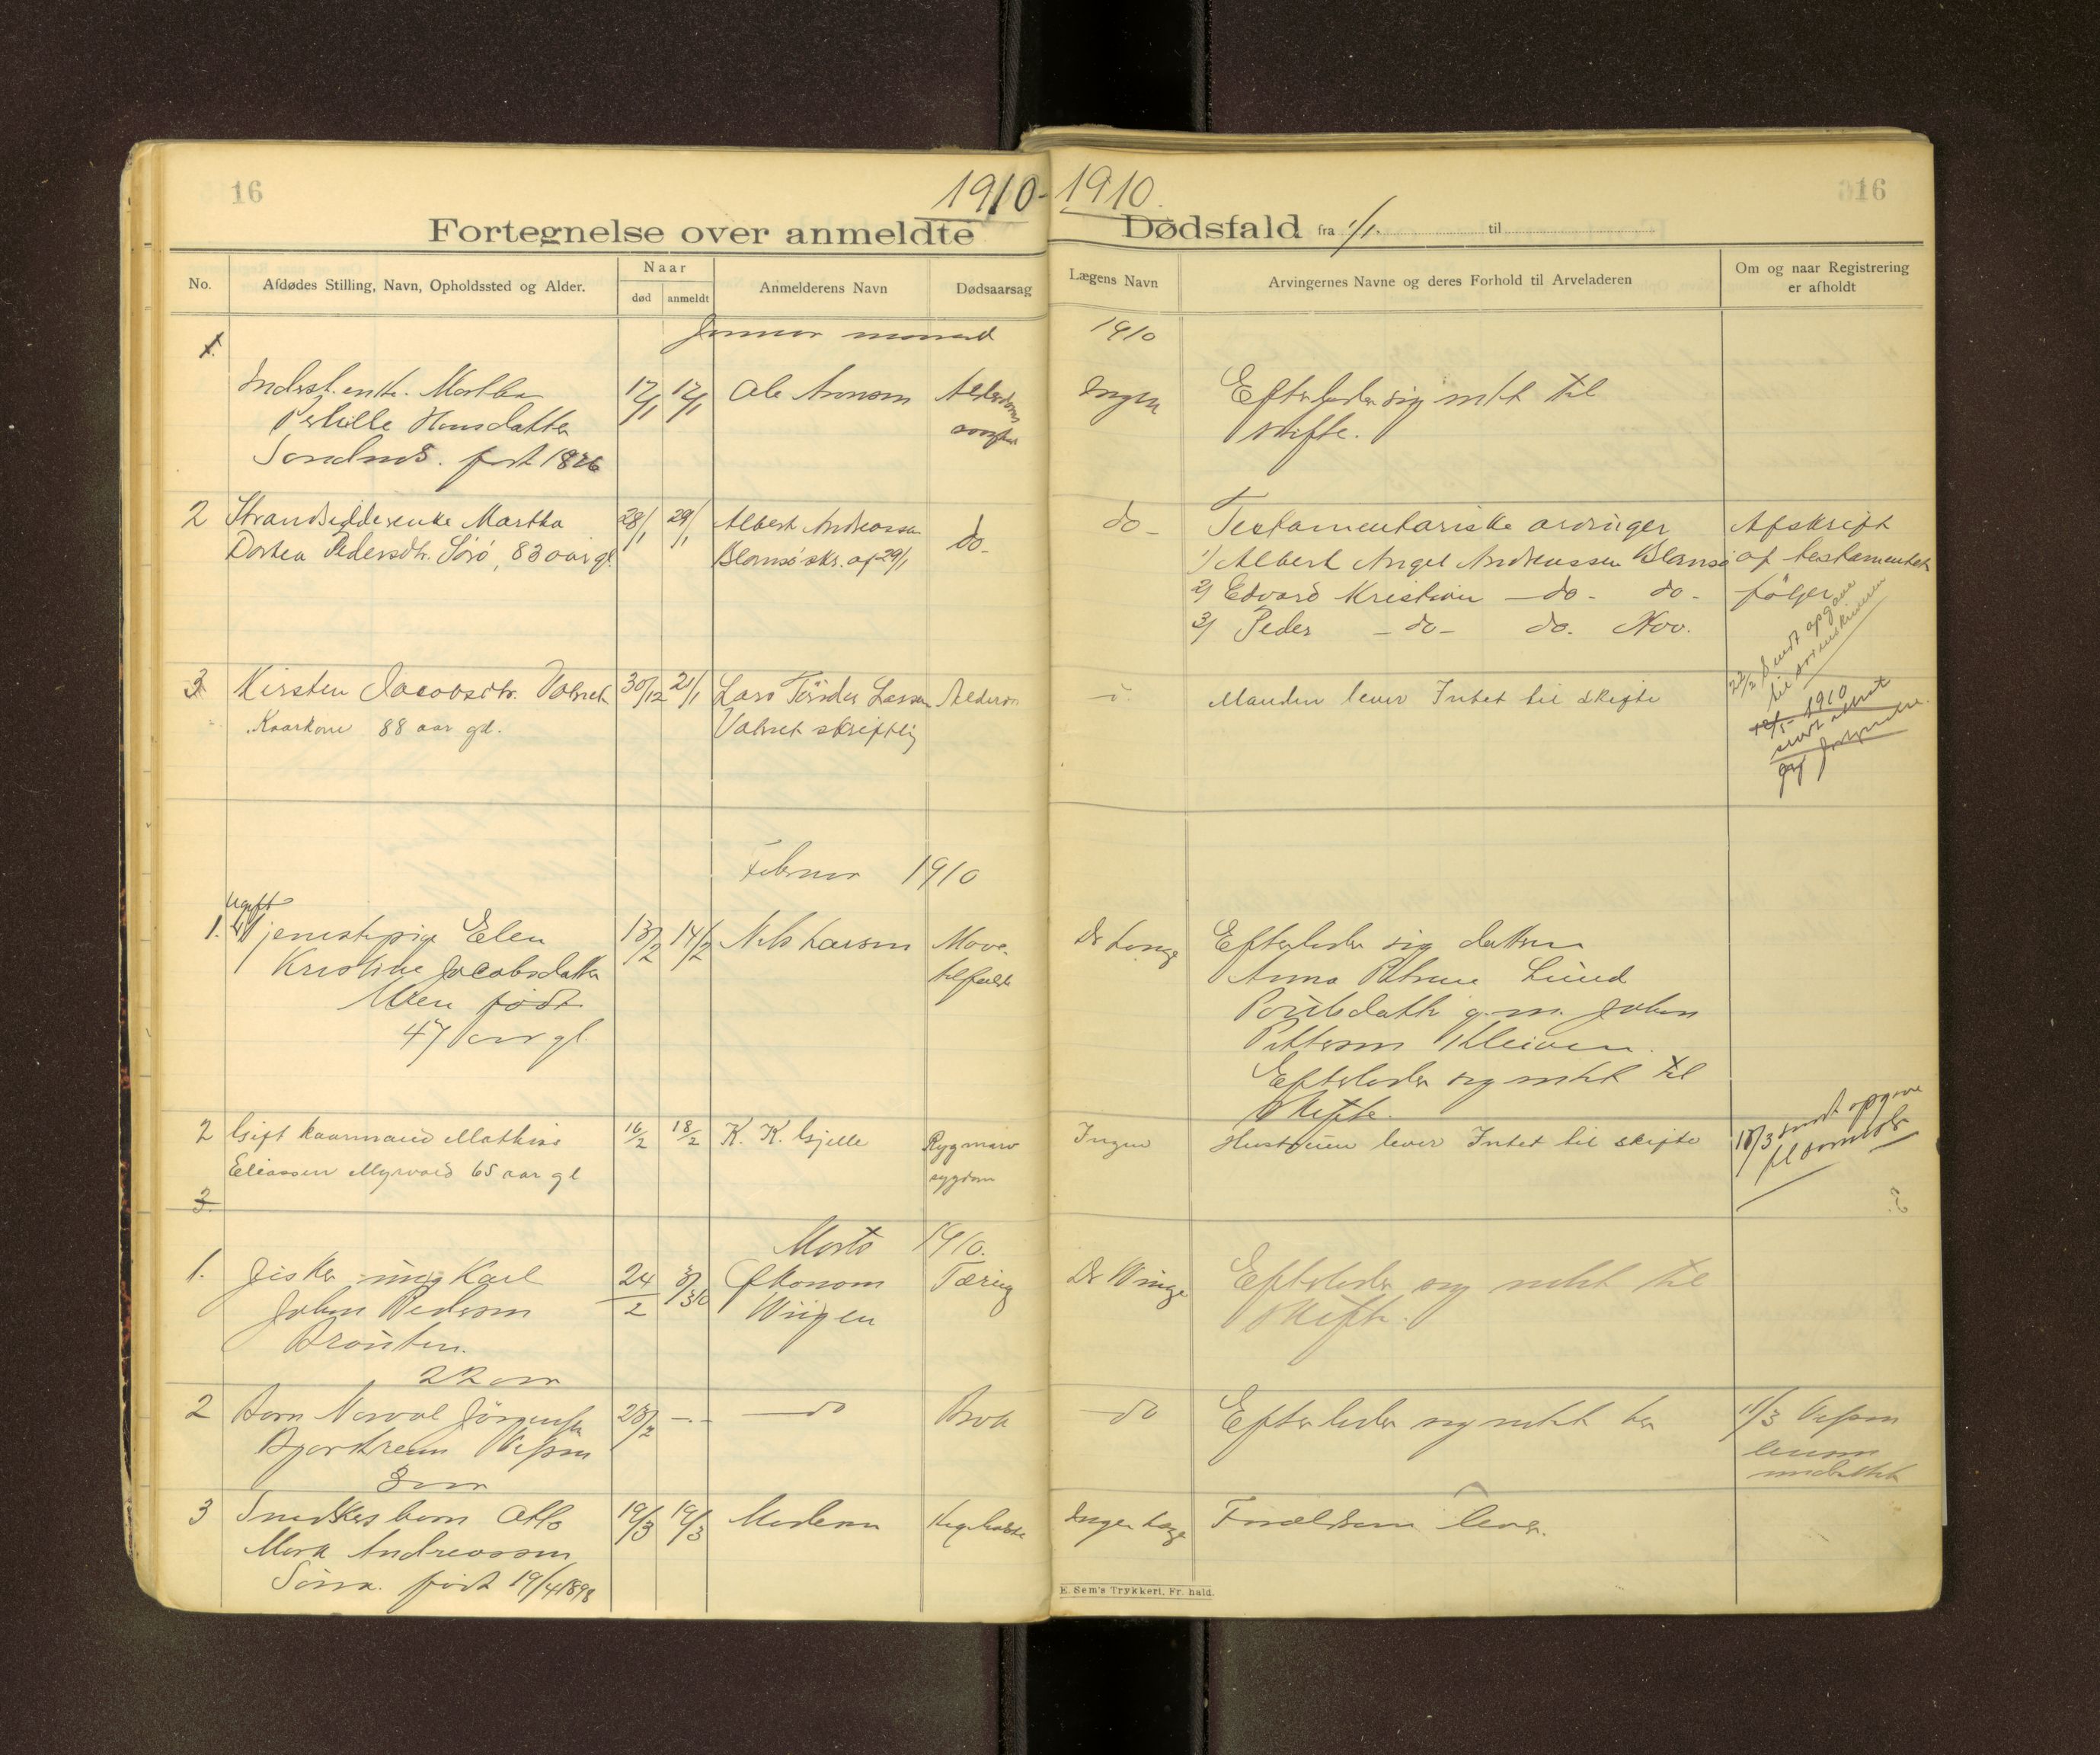 16
1910-
Fortegnelse over anmeldte
No.
Afdødes Stilling, Navn, Opholdssted og Alder.
Naar
død
anmeldt
Anmelderens Navn
Dødsaarsag
Januar maaned
1.
Indrst. enke. Martha
Pernille Hansdatter
født 1826
17/1
17/1
Ole Aronsen
Alderdoms
2
Strandsidderenke Martha
Dortea Pedersdtr. Sörö, 83 aar gl
28/1
29/1
Albert Andreassen
Blomsö skr. af 29/1
do-
3
Kirsten Jacobsdtr.
Kaarkone 88 aar gl.
30/12
21/1
Lars Larsen
skriftlig
Alderdom
Februar 1910
ugift
1. Tjenestepige Elen
Kristine Jacobsdatter
født
47 aar gl
13/2
14/2
Nils Larsen
Mave-
tilfælde
2
Gift kaarmand Mathias
Eliassen Myrvold 65 aar gl
16/2
18/2
K. K. Gjelle
Rygmarv
sygdom
3.
Marts 1910.
1. Fisker ung Karl
Johan Pedersen
22 aar
24/2
Økonom
Wiigen
Tæring
2
Barn Norval Jörgensen
8 aar
28/2
-.-
do
Brok
3
Snedkers barn Otto
Mark Andreassen
født 19/4 1898
19/3
19/3
Moderen
1910.
316
Dødsfald fra 1/1. til
Lægens Navn
Arvingernes Navne og deres Forhold til Arveladeren
Om og naar Registrering
er afholdt
1910
Ingen
Efterlader sig intet til
skifte.
do-
Testamentariske arvinger
1) Albert Angel Andreassen Blomsö
2) Edvard Kristian -do- do-
3) Peder -do- do. Hov.
Afskrift
af testamentet
følger
22/2 Sendt opgave
1910
Manden lever Intet til skifte
Dr Lange
Efterlader sig datteren
Anna Petrine Lund
Poulsdatter g. m. Johan
Pettersen Kleiven.
Efterlader sig intet til
skifte.
Ingen
Hustruen lever Intet til skifte
18/3 sendt opgave
Dr Winge
Efterlader sig intet til
skifte.
do
Efterlader sig intet her
11/3 Vefsen
lensm
underrettet
Ingen Læge
Forældrene lever.
E. Sem's Trykkeri, Fr.hald.